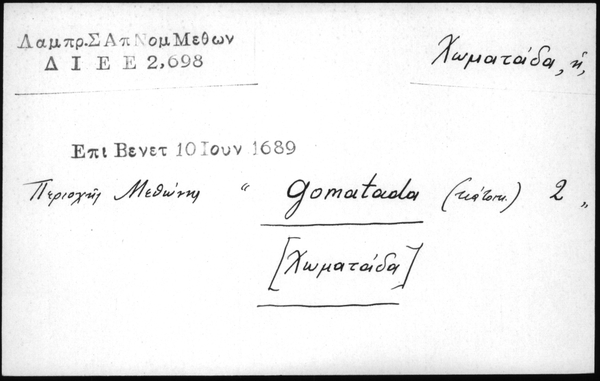 Λαμπρ.ΣΑπΝομΜεθων
Χωματάδα, ἡ,
Δ Ι Ε Ε 2,698
Επι Βενετ 10 Ιουν 1689
Περιοχῆς Μεθώνης “ gomatada (κάτοικ.) 2 „
[Χωματάδα]